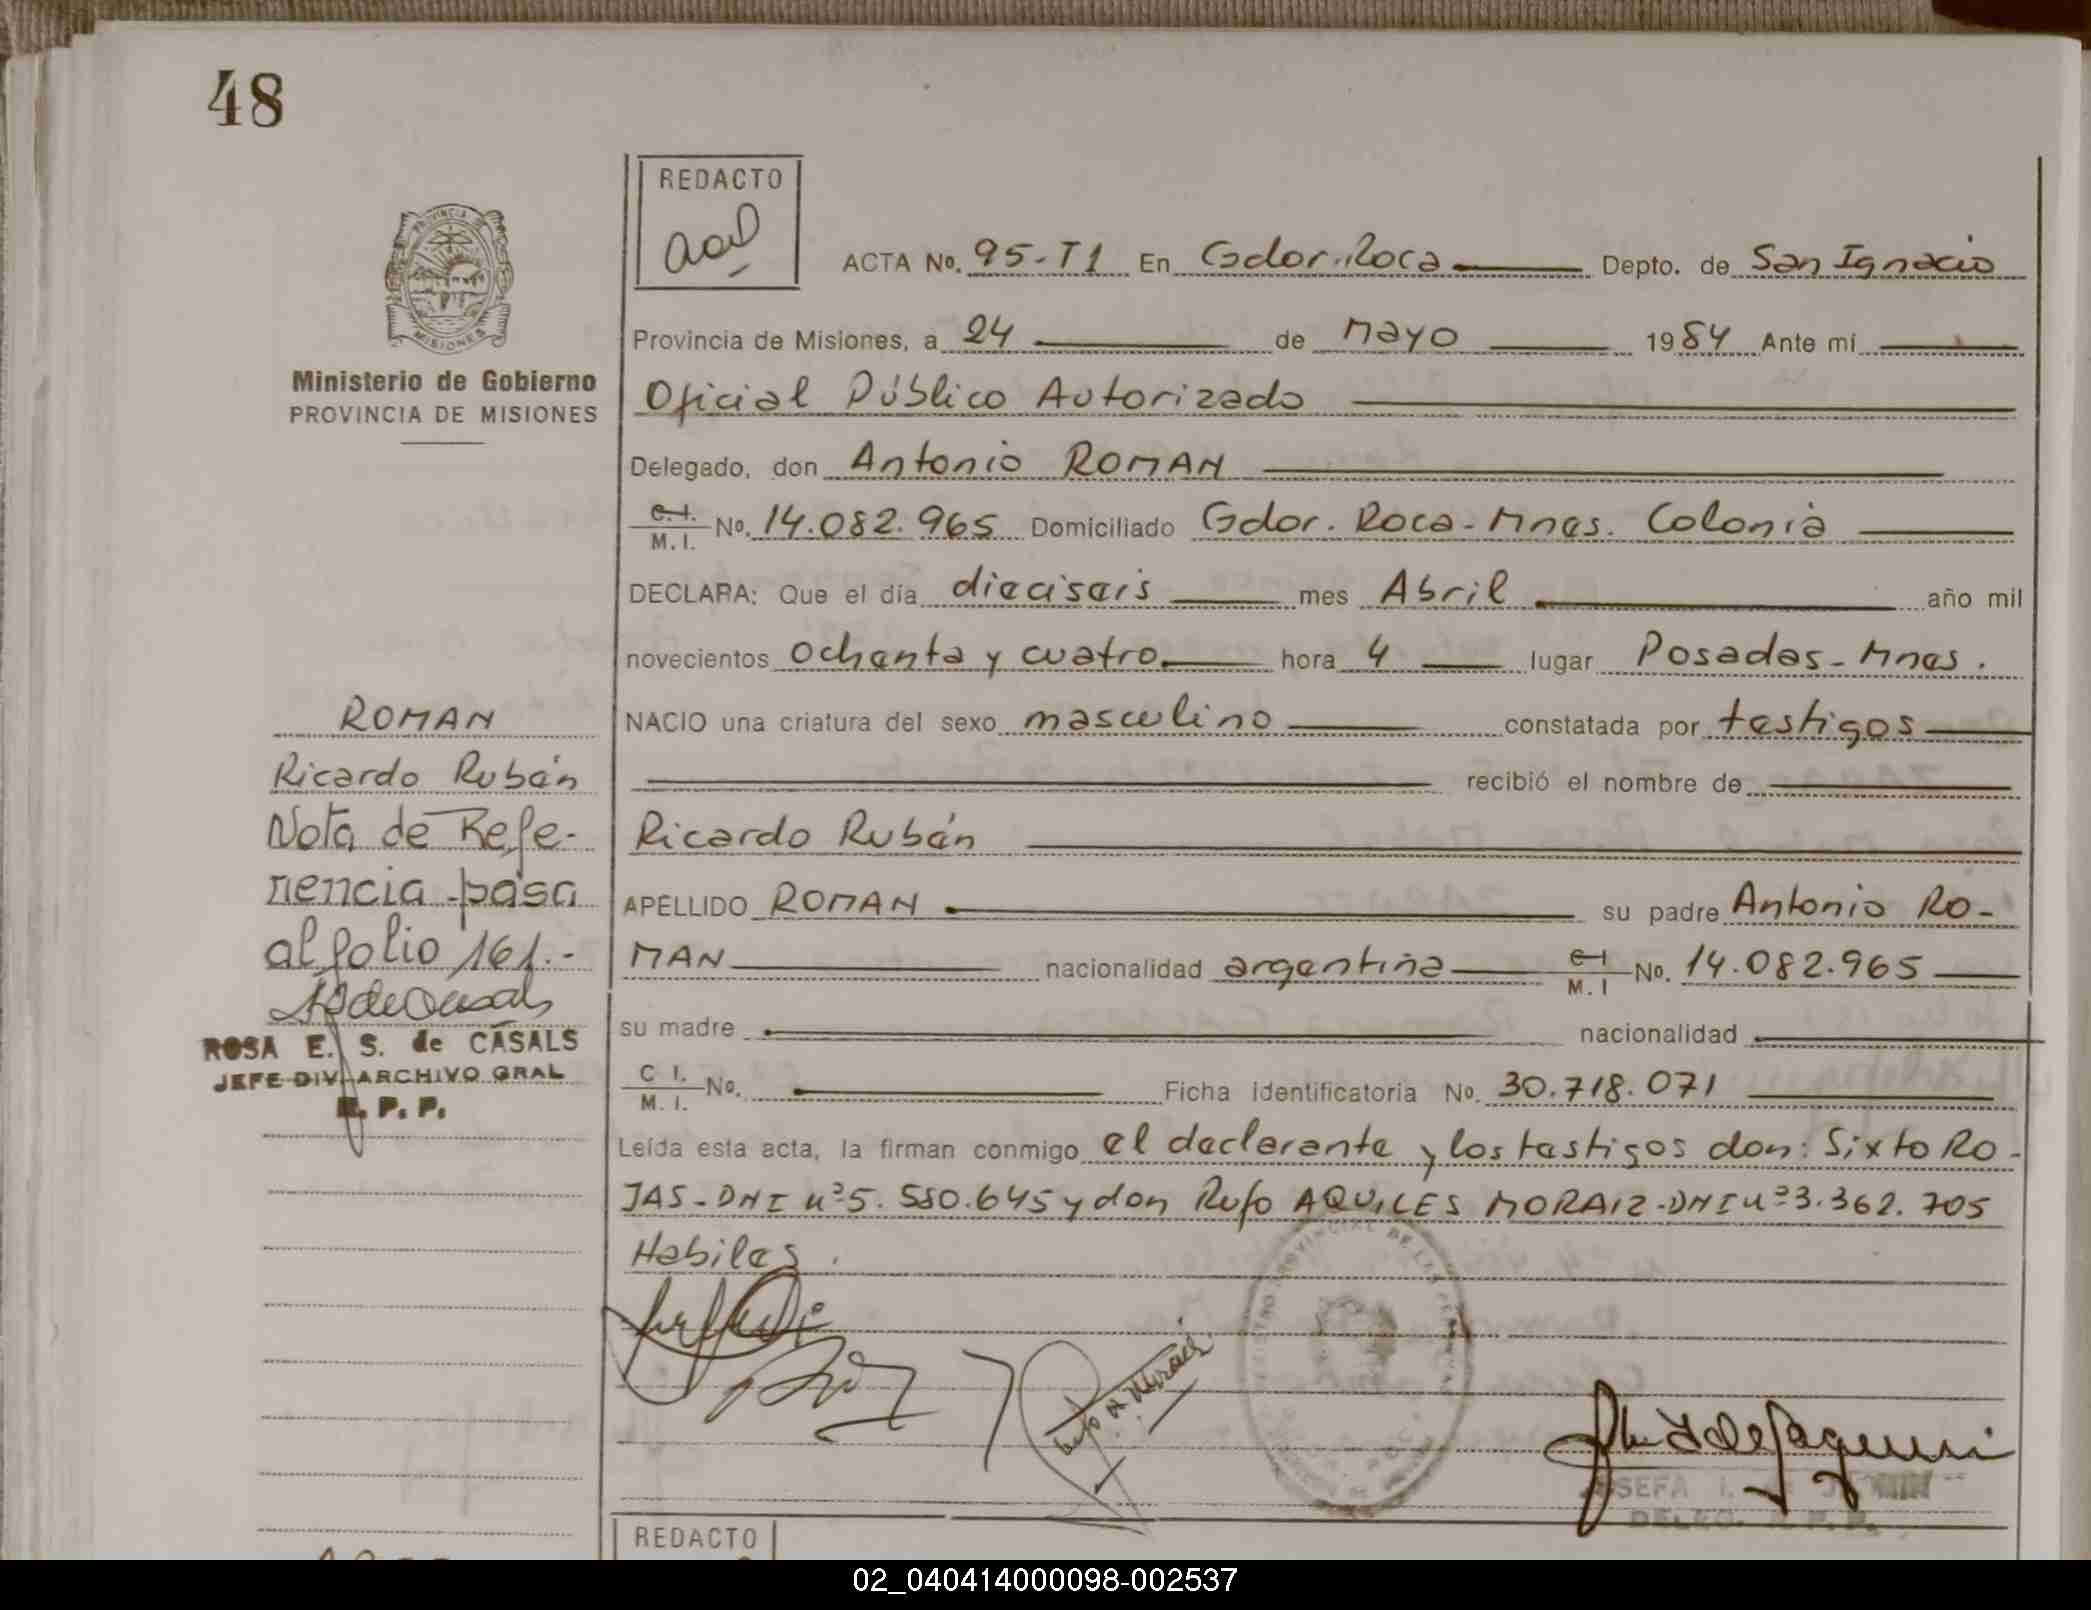 48
REDACTO
ACTA No. 95-T1 En Gdor. Roca Depto. de San Ignacio
Provincia de Misiones, a 24 de Mayo 1984 Ante mí
Oficial Público Autorizado
Delegado, don Antonio ROMAN
C.I. M.I. No. 14.082.965 Domiciliado Gdor. Roca-Mnes. Colonia
DECLARA: Que el día dieciseis mes Abril año mil
novecientos ochenta y cuatro hora 4 lugar Posadas-Mnes.
NACIO una criatura del sexo masculino constatada por testigos
recibió el nombre de
Ricardo Rubén
APELLIDO ROMAN su padre Antonio RO-
MAN nacionalidad argentina C-I M.I No. 14.082.965
su madre nacionalidad
C I. M. I. No. Ficha identificatoria No. 30.718.071
Leída esta acta, la firman conmigo el declarante y los testigos don: Sixto RO-
JAS-DNI nº5.550.645 y don Rufo AQUILES MORAIZ-DNI nº3.362.705
Habiles.
PROVINCIA DE
MISIONES
Ministerio de Gobierno
PROVINCIA DE MISIONES
ROMAN
Ricardo Rubén
Nota de Refe-
rencia pasa
al folio 161.-
ROSA E. S. de CASALS
JEFE DIV. ARCHIVO GRAL
R. P. P.
REDACTO
02_040414000098-002537